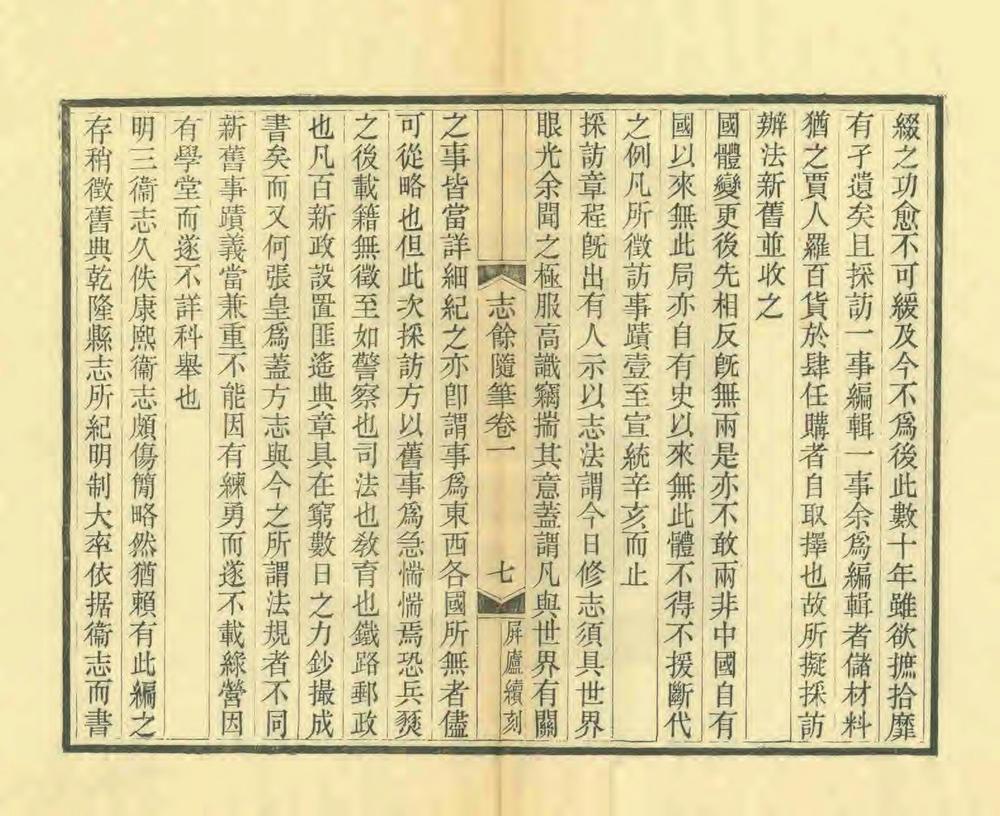 綴之功愈不可緩及今不爲後此數十年雖欲摭拾靡
有孑遺矣且採訪一事編輯一事余爲編輯者儲材料
猶之賈人羅百貨於肆任購者自取擇也故所擬採訪
辦法新舊並收之
國體變更後先相反旣無兩是亦不敢兩非中國自有
國以來無此局亦自有史以來無此體不得不援斷代
之例凡所徵訪事蹟壹至宣統辛亥而止
採訪章程旣出有人示以志法謂今日修志須具世界
眼光余聞之極服高識竊揣其意蓋謂凡與世界有關
志餘隨筆卷一
七
屏廬續刻
之事皆當詳細紀之亦卽謂事爲東西各國所無者儘
可從略也但此次採訪方以舊事爲急惴惴焉恐兵燹
之後載籍無徵至如警察也司法也敎育也鐵路郵政
也凡百新政設置匪遙典章具在窮數日之力鈔撮成
書矣而又何張皇爲蓋方志與今之所謂法規者不同
新舊事蹟義當兼重不能因有練勇而遂不載綠營因
有學堂而遂不詳科舉也
明三衞志久佚康熙衞志頗傷簡略然猶賴有此編之
存稍徵舊典乾隆縣志所紀明制大率依据衞志而書